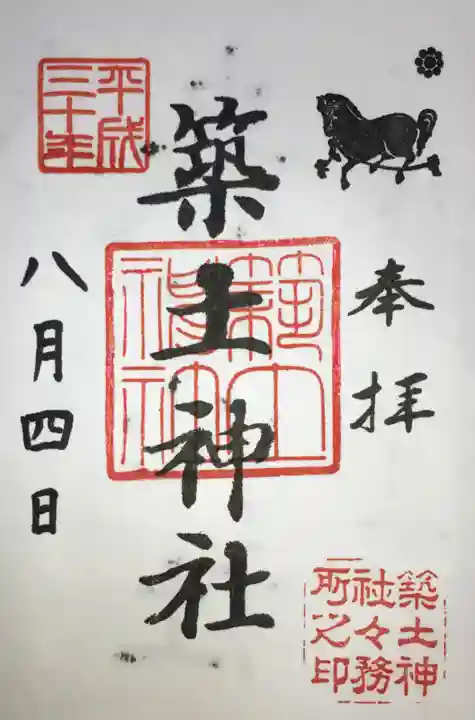 奉拝
築土神社
平成三十年
八月四日
築土神社
築土神
社々務
所之印